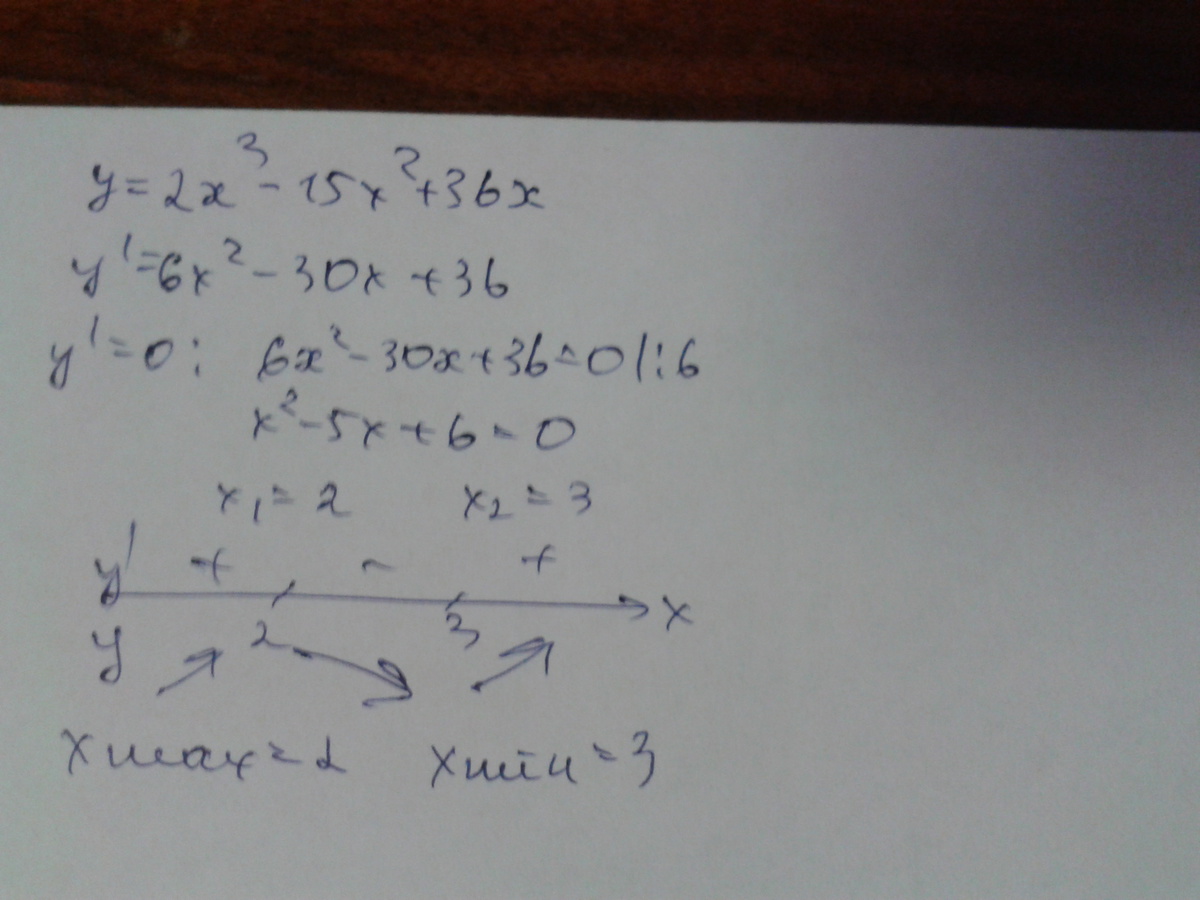 y=2x³-15x²+36x
y'=6x²-30x+36
y'=0: 6x²-30x+36=0|:6
x²-5x+6=0
x₁=2 x₂=3
y' + - + x
y 2 3
xmax=2 xmin=3